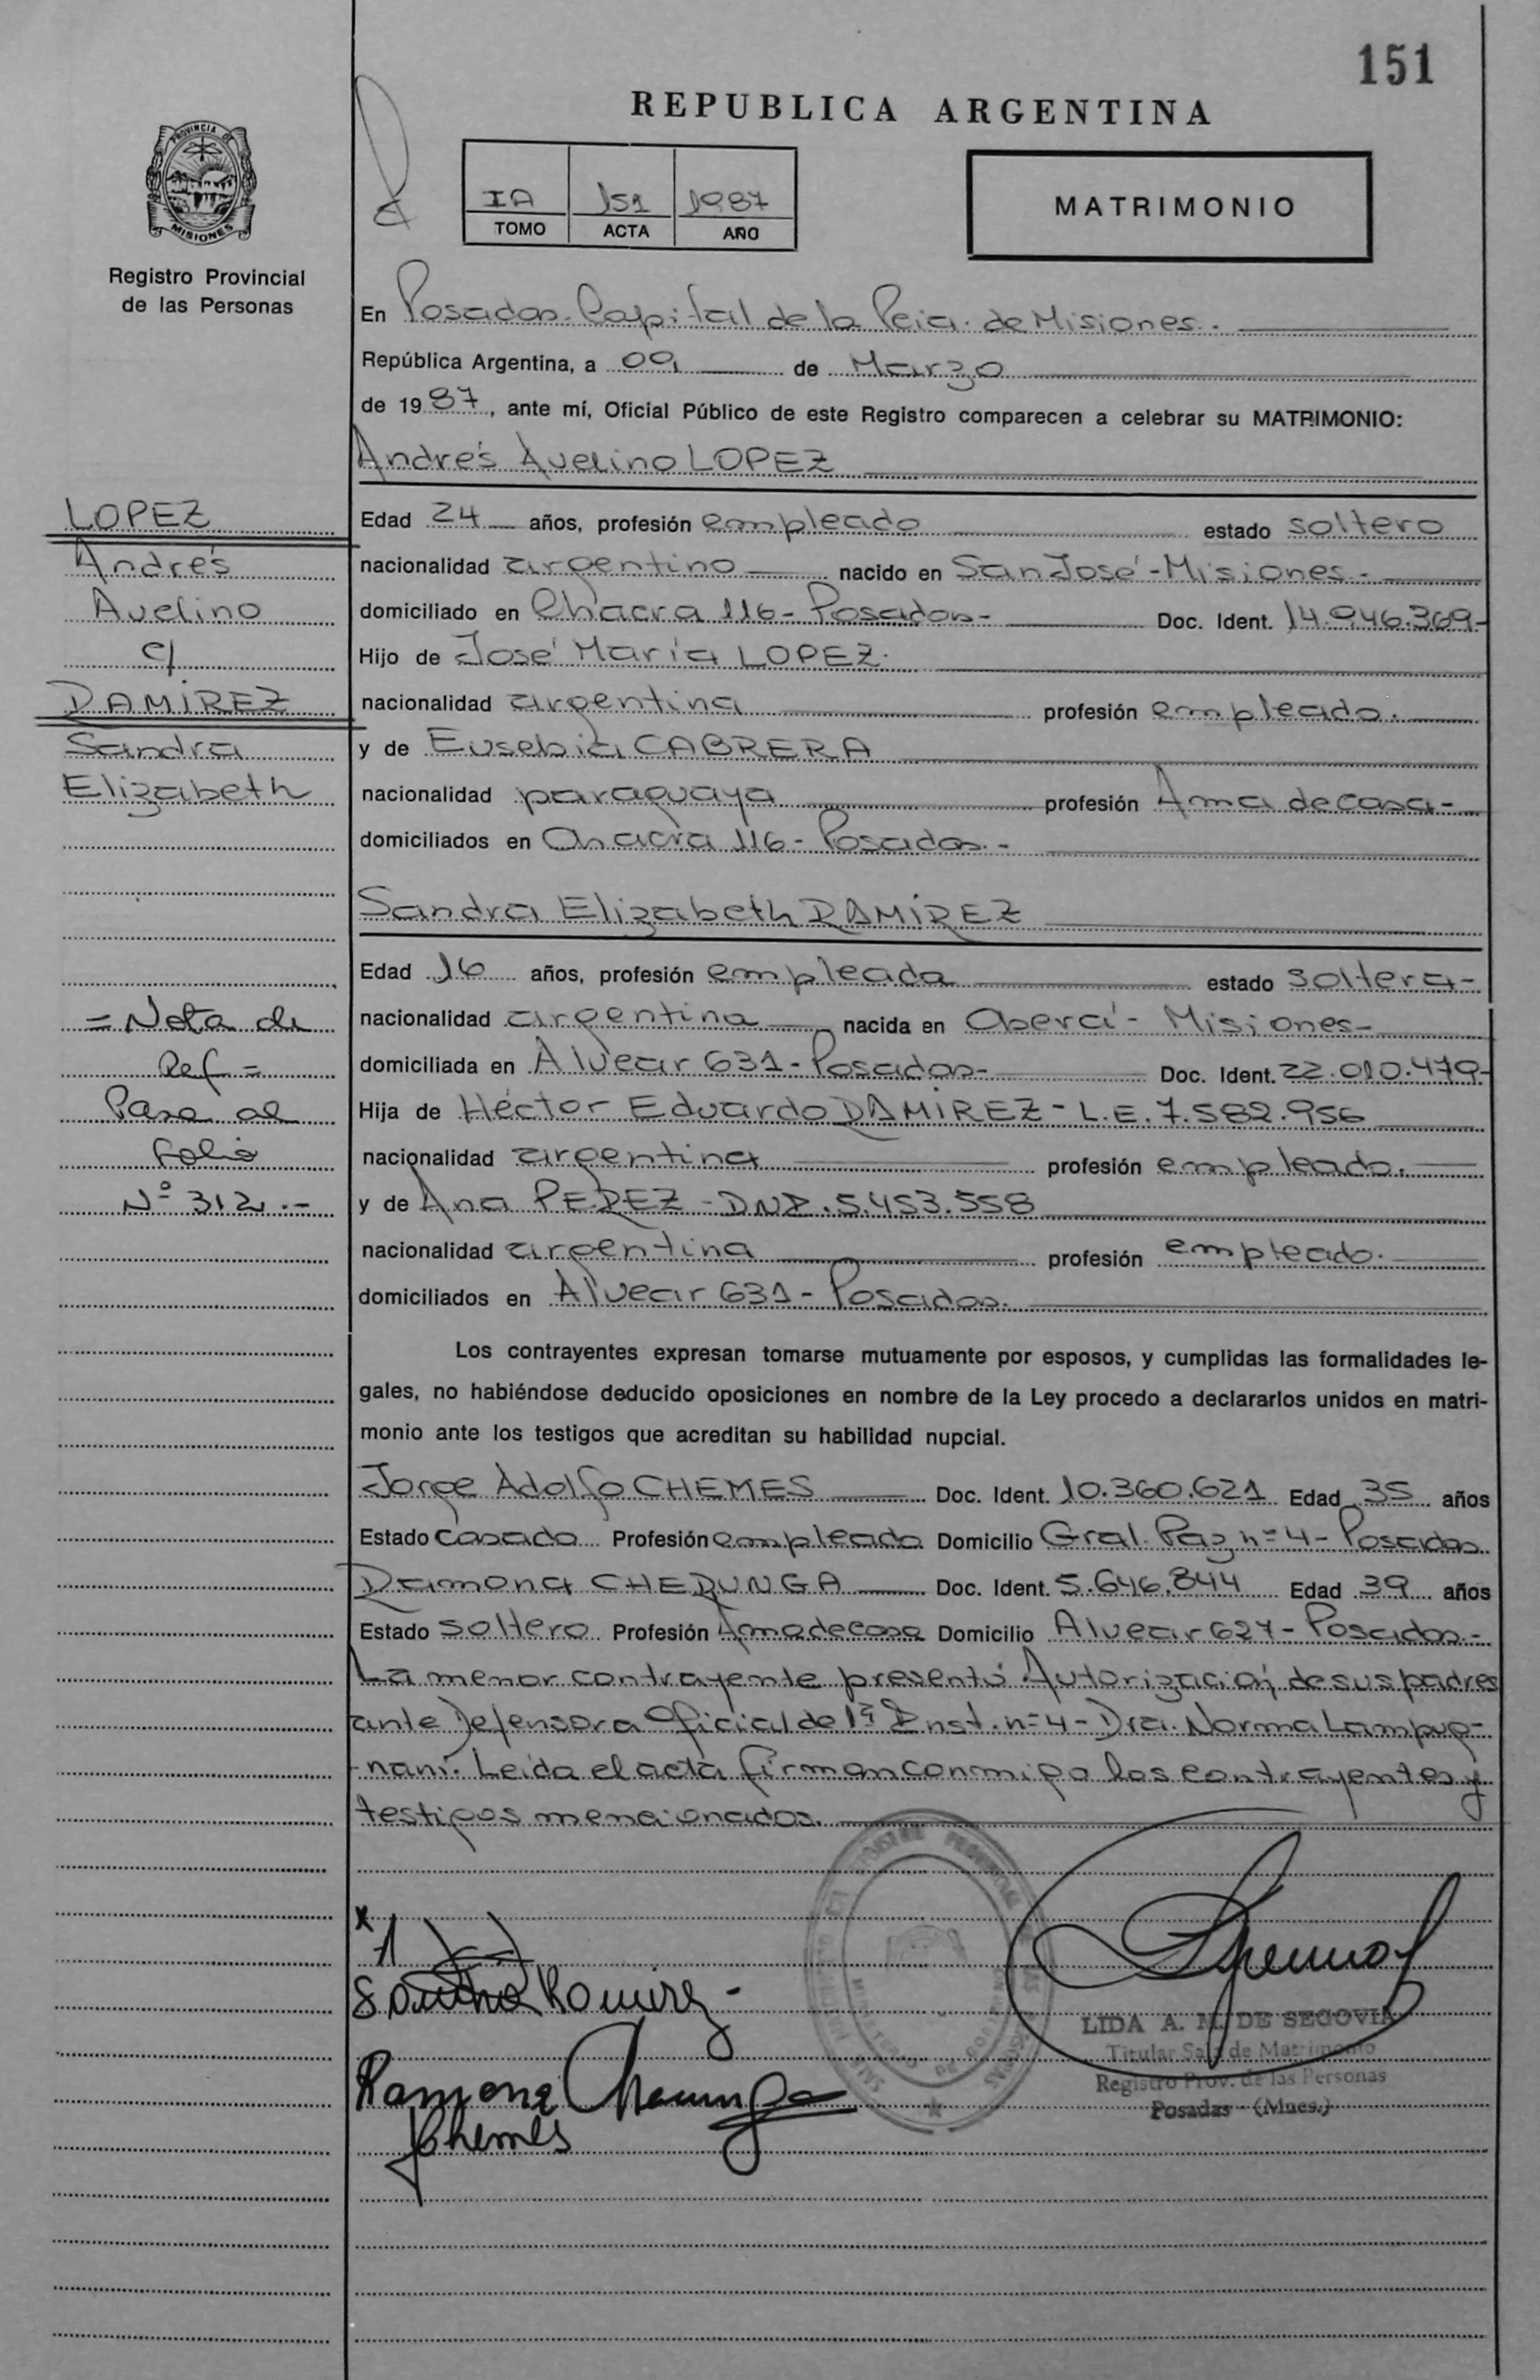 151
REPUBLICA ARGENTINA
PROVINCIA DE
MISIONES
Registro Provincial
de las Personas
IA 151 1987
TOMO ACTA AÑO
MATRIMONIO
En Posadas-Capital de la Pcia. de Misiones.
República Argentina, a 09 de Marzo
de 1987, ante mí, Oficial Público de este Registro comparecen a celebrar su MATRIMONIO:
Andrés Avelino LOPEZ
LOPEZ
Andrés
Avelino
c/
RAMIREZ
Sandra
Elizabeth
Edad 24 años, profesión empleado estado soltero
nacionalidad argentino nacido en San José-Misiones-
domiciliado en Chacra 116-Posadas- Doc. Ident. 14.946.369-
Hijo de José María LOPEZ.
nacionalidad argentina profesión empleado.
y de Eusebia CABRERA
nacionalidad paraguaya profesión Ama de casa-
domiciliados en Chacra 116-Posadas.-
Sandra Elizabeth RAMIREZ
Edad 16 años, profesión empleada estado soltera-
nacionalidad argentina nacida en Oberá-Misiones-
domiciliada en Alvear 631-Posadas- Doc. Ident. 22.010.479-
Hija de Héctor Eduardo RAMIREZ-L.E.7.582.956
nacionalidad argentina profesión empleado.
y de Ana PEREZ-DNI.5.453.558
nacionalidad argentina profesión empleado.
domiciliados en Alvear 631-Posadas.
=Nota de
Ref=
Pasa al
folio
Nº 312.-
Los contrayentes expresan tomarse mutuamente por esposos, y cumplidas las formalidades le-
gales, no habiéndose deducido oposiciones en nombre de la Ley procedo a declararlos unidos en matri-
monio ante los testigos que acreditan su habilidad nupcial.
Jorge Adolfo CHEMES Doc. Ident. 10.360.621 Edad 35 años
Estado casado Profesión empleado Domicilio Gral. Paz nº4-Posadas
Ramona CHERUNGA Doc. Ident. 5.646.844 Edad 39 años
Estado soltero Profesión Ama de casa Domicilio Alvear 627-Posadas.-
La menor contrayente presentó Autorización de sus padres
ante Defensora Oficial de 1ª Inst. nº4-Dra. Norma Lampug-
-nani. Leída el acta firman conmigo los contrayentes y
testigos mencionados.
x
Sandra Ramirez-
Ramona Cherunga
Chemes
LIDA A. M. DE SEGOVIA
Titular Sala de Matrimonio
Registro Prov. de las Personas
Posadas - (Mnes.)